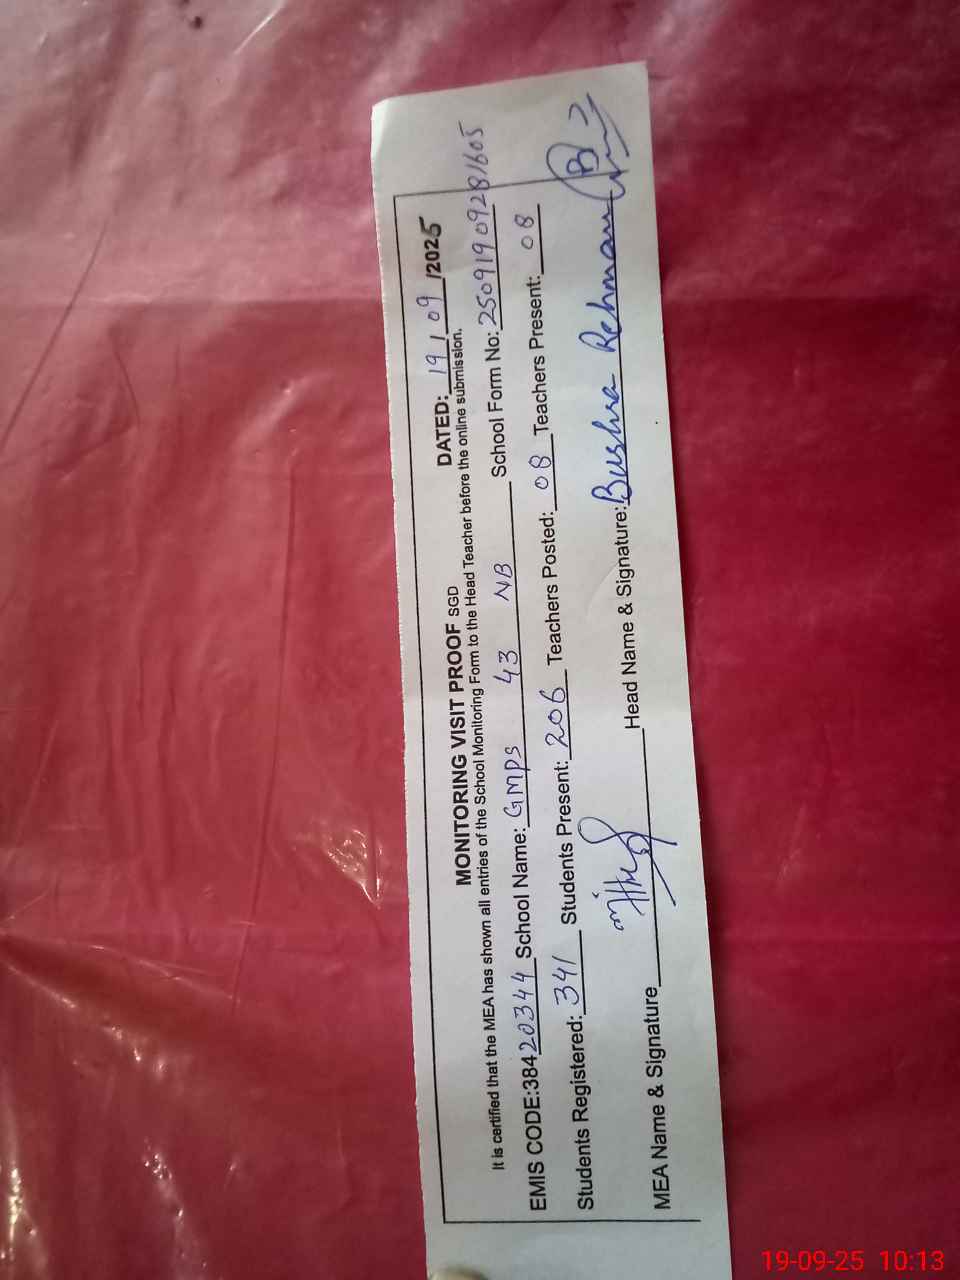 MONITORING VISIT PROOF SGD DATED: 19/09/2025
It is certified that the MEA has shown all entries of the School Monitoring Form to the Head Teacher before the online submission.
EMIS CODE:38420344 School Name: GMPS 43 NB School Form No: 25091909281605
Students Registered: 341 Students Present: 206 Teachers Posted: 08 Teachers Present: 08
MEA Name & Signature Head Name & Signature: Bushra Rehman
19-09-25 10:13